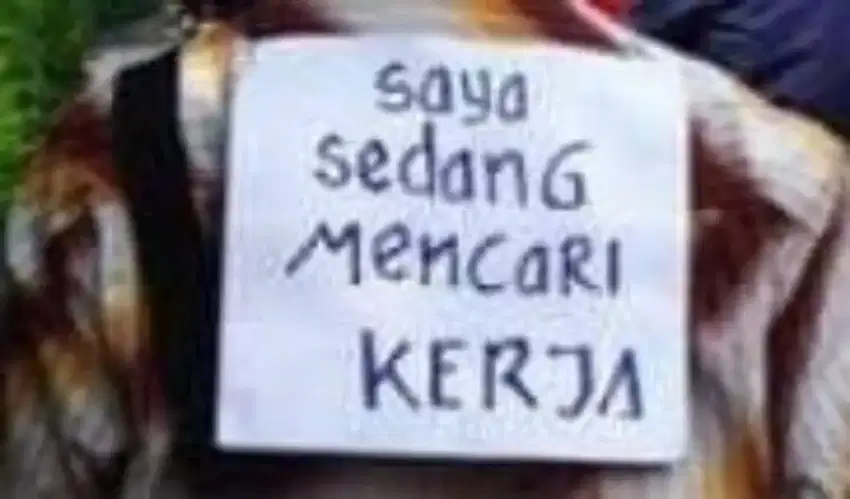 saya
sedanG
MencaRI
KERJA